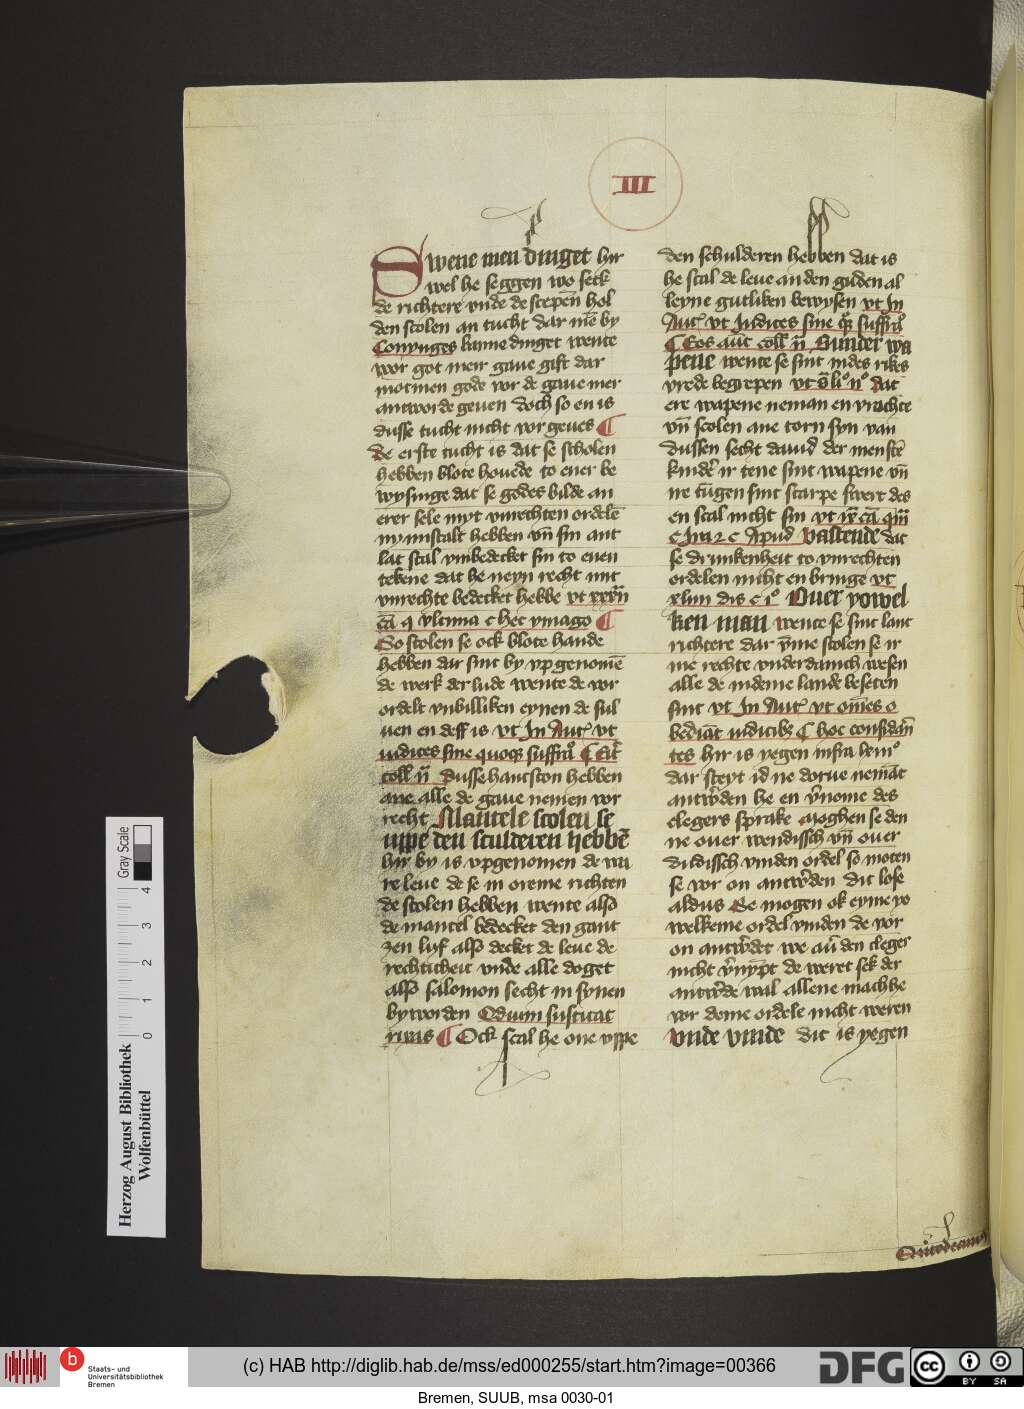 III
Swene men dinget hir
wel he seggen wo seck
de richtere vnde de scepen̄ hol
den scolen an tucht dar me̅ by
Conynges banne dinget wente
wor got meir gaue gift dar
mot men gode vor de gaue mer
antworde geuen doch so en is
dusse tucht nicht vorgeues ¶
de erste tucht is dat se scholen
hebben blote houede to ener be
wysinge dat se godes bilde an
erer sele myt vnrechten ordele
ny mistalt hebben vn̄ sin ant
lat scal vmbedecket sin to enen
tekene dat he neyn recht mit
vnrechte bedecket hebbe vt xxxiij
ca̅ q vltima c hec ymago ¶
So scolen se ock blote hande
hebben dar sint by vpgenome̅
de werk der lude wente de vor
ordelt vnbilliken eynen de sul
uen en deff is vt In Aut' vt
iudices sine quoquo suffra° ¶ Et
coll' n̄ Dusse hantscon hebben
ane alle de gaue nemen vor
recht Mantele scolen se
uppe den sculderen hebbe̅
hir by is vpgenomen de wa
re leue de se in oreme richten
de scolen hebben wente also
de mantel bedecket den gant
zen lyf also decket de leue de
rechticheit vnde alle doget
also salomon secht in synen
byworden Odium suscitat
rixas ¶ Ock scal he one vppe
den schulderen hebben dat is
he scal de leue an den gilden al
leyne gutliken bewysen vt In
Aut' vt Iudices sine q̄ suffra°
¶ Eos aut̄ coll' n̄ Sunder wa
pene wente se sint in des rikes
vrede begrepen vt s̄ li° ij° Dat
ere wapene neman en vruchte
vn̄ scolen ane torn syn van
dussen secht dauid der mensce̅
kinder ir tene sint wapene vn̄
ire tu̅gen sint scarpe swert des
en scal nicht sin
Vastende dat
se drunkenheit to vnrechten
ordelen nicht en bringe vt
xliiij dis c i° Ouer yowel
ken man wente se sint lant
richtere dar vm̄e scolen se ir
me rechte vnderdanich wesen
alle de in deme lande beseten
sint vt In Aut' vt om̅es o
bediant iudicib₉ ¶ hoc considan̅
tes hir is yegen infra
dar steyt id ne dorue nema̅t
antw̄den he en v̄nome des
clegers sprake Moghen se den
ne ouer wendissch vn̄ ouer
dudissch vinden ordel so moten
se vor on antw̄den dit lose
aldus Se mogen ok eyme yo
welkeme ordel vinden de vor
on antw̄det we au̅ den cleger
nicht de weret sek der
antw̄de wal allene mach he
vor deme ordele nicht weren
Vnde vinde dit is yegen
Gray Scale
4 3 2 1 0
Herzog August Bibliothek
Wolfenbüttel
b
Staats- und
Universitätsbibliothek
Bremen
(c) HAB http://diglib.hab.de/mss/ed000255/start.htm?image=00366
DFG
cc BY SA
Bremen, SUUB, msa 0030-01